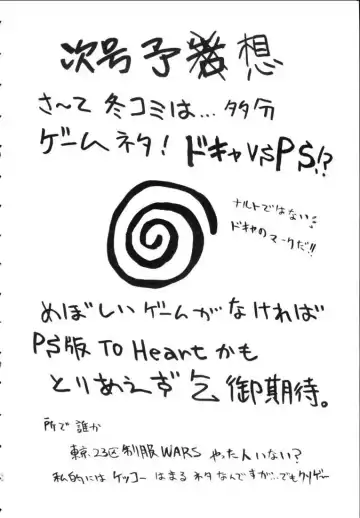 次号予想
さ〜て冬コミは…多分
ゲームネタ!ドキャVSPS!?
ナルトではない
ドキャのマークだ!!
めぼしいゲームがなければ
PS版 To Heartかも
とりあえず乞御期待。
所で誰か
東京23区制服WARS やった人いない?
私的にはケッコーはまるネタなんですが…でもクソゲー